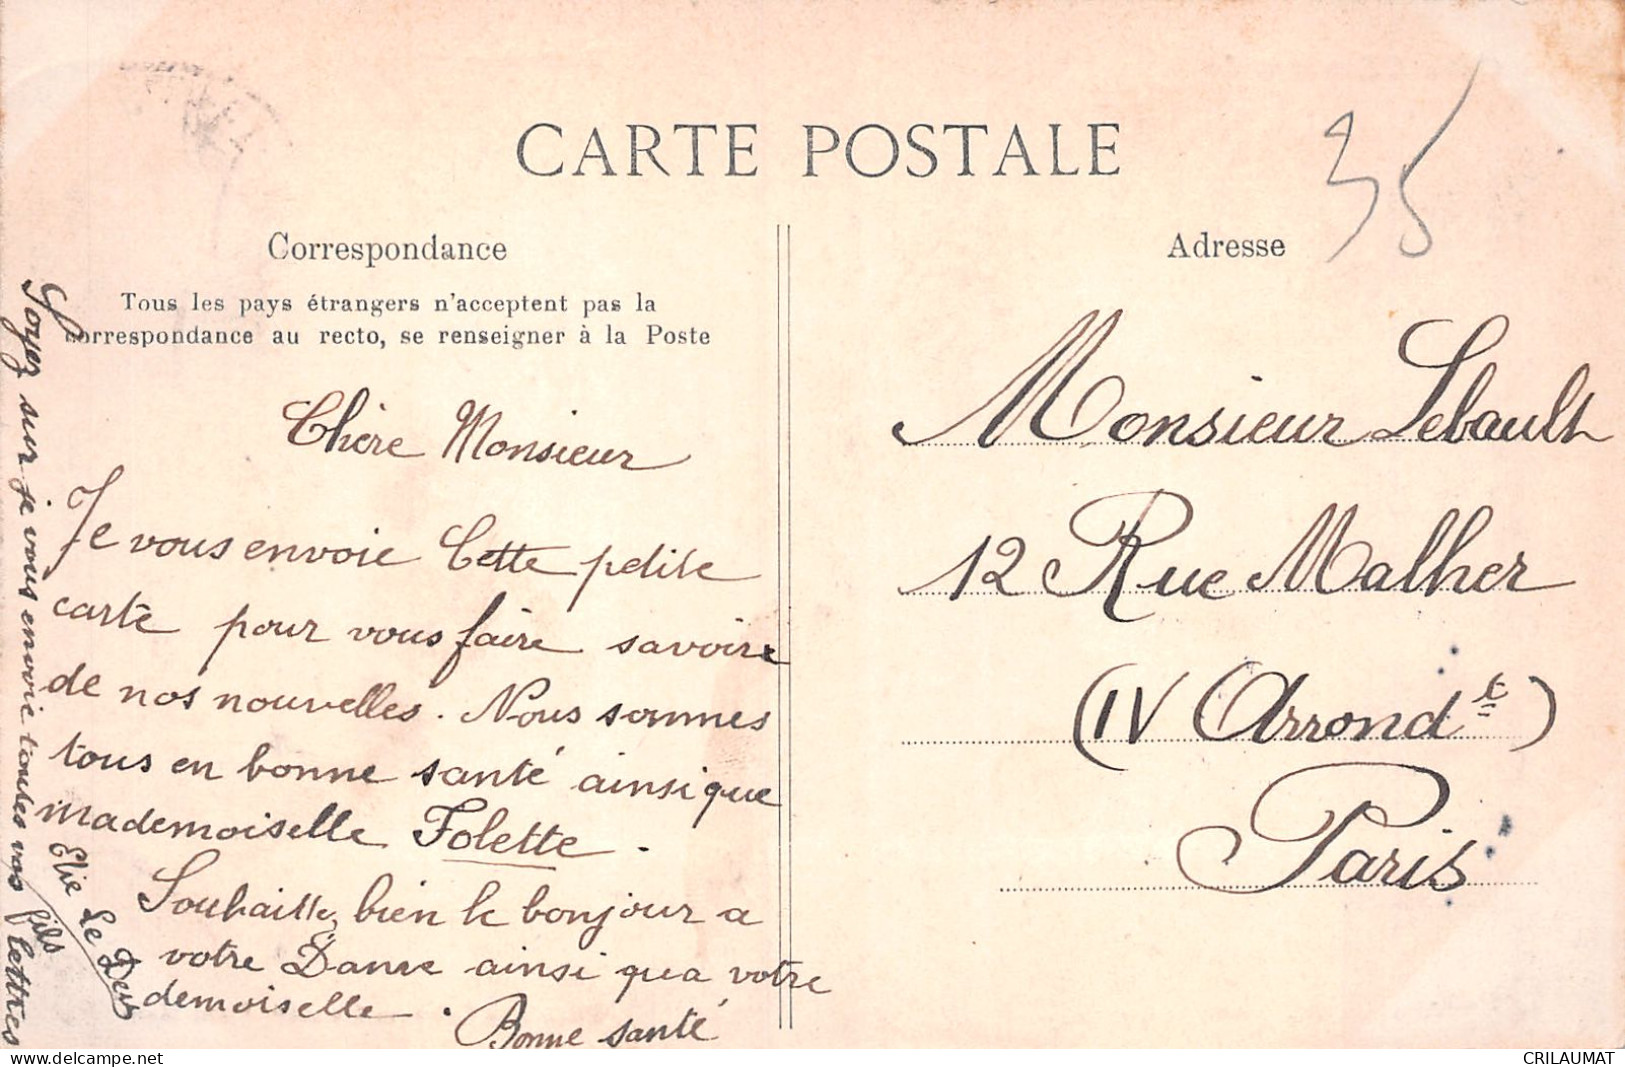 CARTE POSTALE
35
Correspondance
Adresse
Tous les pays étrangers n'acceptent pas la
correspondance au recto, se renseigner à la Poste
Chère Monsieur
Je vous envoie Cette petite
carte pour vous faire savoire
de nos nouvelles. Nous sommes
tous en bonne santé ainsi que
mademoiselle Folette.
Souhaittez bien le bonjour a
votre Dame ainsi qu a votre
demoiselle.
Bonne santé
Elie Le Der
fils
Soyez sur je vous envoie toutes vos lettres
Monsieur Lebault
12 Rue Malher
(IV Arrondt)
Paris
CRILAUMAT